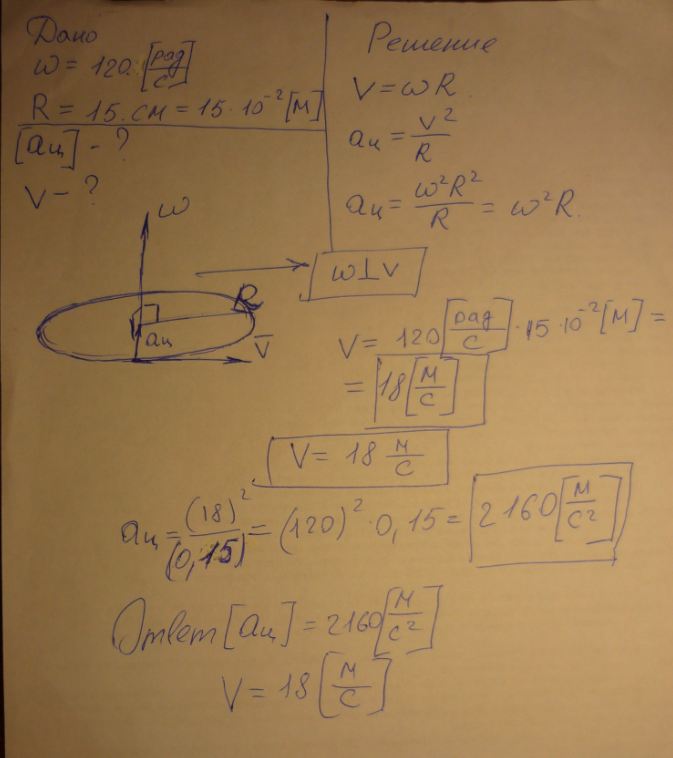 Дано
ω = 120 [рад/с]
R = 15 см = 15 · 10⁻² [м]
[aц] - ?
V - ?
Решение
V = ωR
aц = V²/R
aц = ω²R²/R = ω²R.
ω
R
aц
V̅
ω⊥V
V = 120 [рад/с] · 15 · 10⁻² [м] =
= 18 [м/с]
V = 18 м/с
aц = (18)²/(0,15) = (120)² · 0,15 = 2160 [м/с²]
Ответ [aц] = 2160 [м/с²]
V = 18 [м/с]